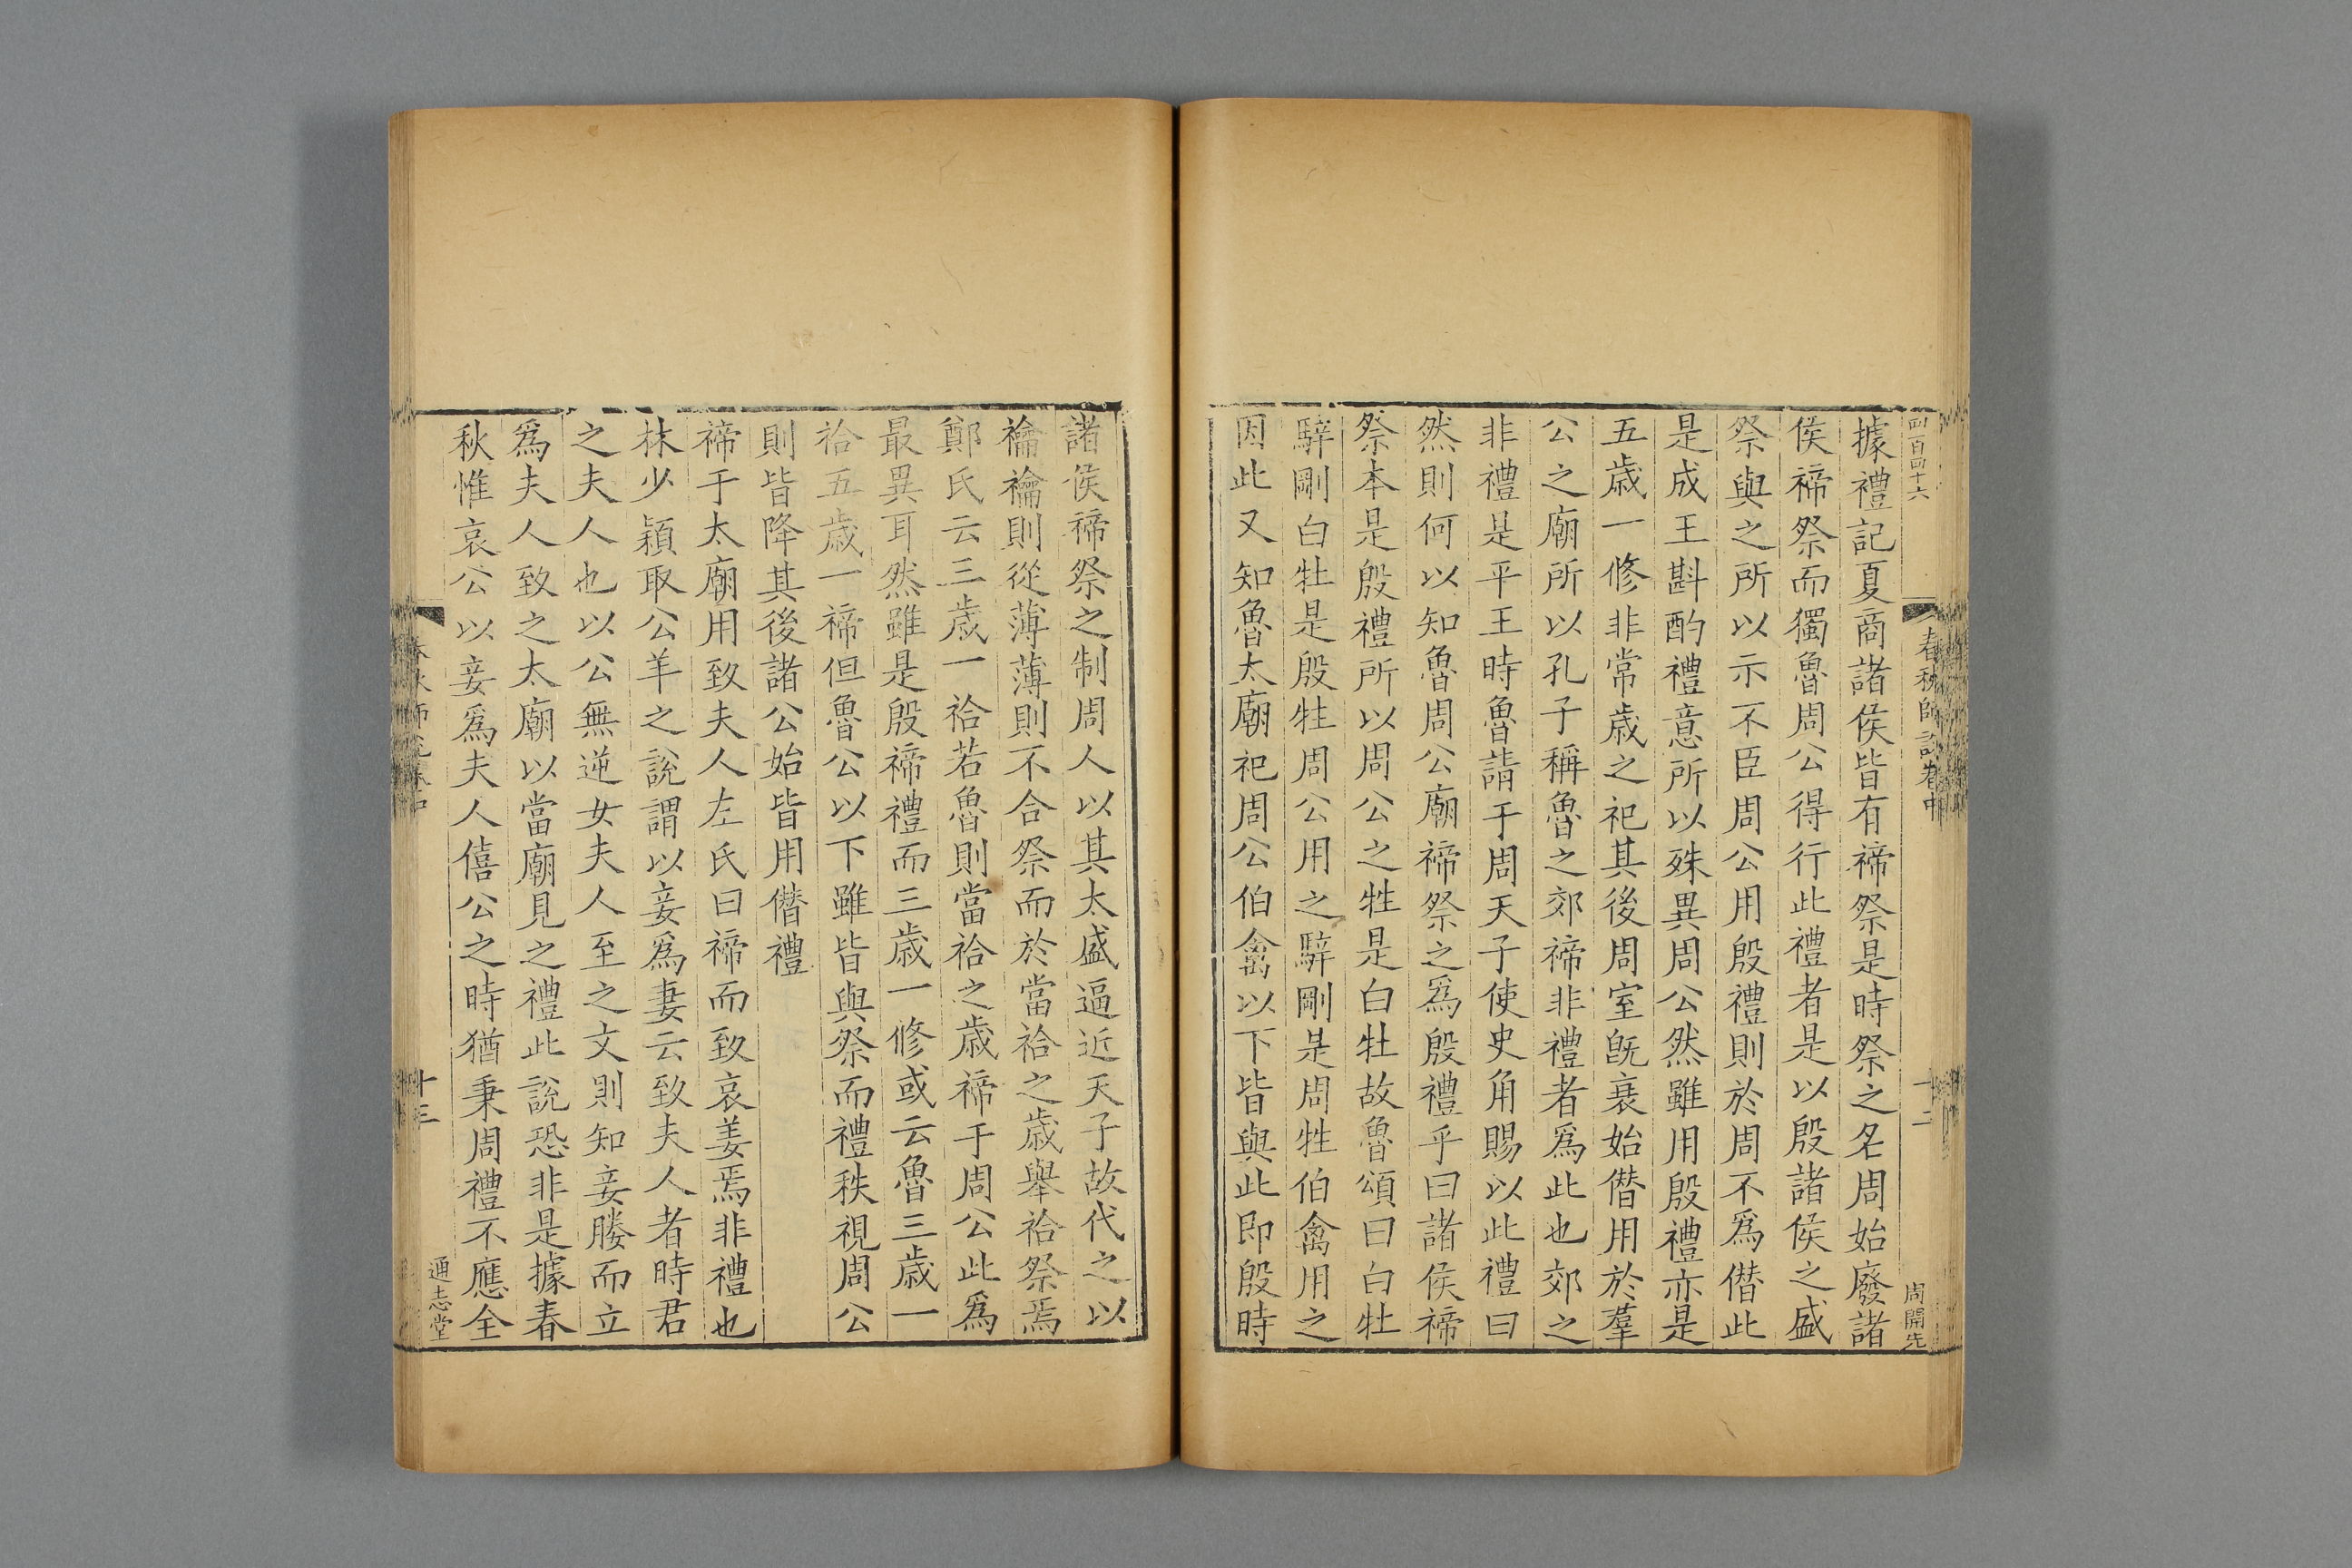 四百四十六
春秋師說卷中
十二
周開先
據禮記夏商諸侯皆有禘祭是時祭之名周始廢諸
侯禘祭而獨魯周公得行此禮者是以殷諸侯之盛
祭與之所以示不臣周公用殷禮則於周不爲僣此
是成王斟酌禮意所以殊異周公然雖用殷禮亦是
五歲一修非常歲之祀其後周室旣衰始僣用於羣
公之廟所以孔子稱魯之郊禘非禮者爲此也郊之
非禮是平王時魯請于周天子使史角賜以此禮曰
然則何以知魯周公廟禘祭之爲殷禮乎曰諸侯禘
祭本是殷禮所以周公之牲是白牡故魯頌曰白牡
騂剛白牡是殷牲周公用之騂剛是周牲伯禽用之
因此又知魯太廟祀周公伯禽以下皆與此即殷時
諸侯禘祭之制周人以其太盛逼近天子故代之以
禴禴則從薄薄則不合祭而於當祫之歲舉祫祭焉
鄭氏云三歲一祫若魯則當祫之歲禘于周公此爲
最異耳然雖是殷禘禮而三歲一修或云魯三歲一
祫五歲一禘但魯公以下雖皆與祭而禮秩視周公
則皆降其後諸公始皆用僣禮
禘于太廟用致夫人左氏曰禘而致哀姜焉非禮也
林少穎取公羊之說謂以妾爲妻云致夫人者時君
之夫人也以公無逆女夫人至之文則知妾媵而立
爲夫人致之太廟以當廟見之禮此說恐非是據春
秋惟哀公以妾爲夫人僖公之時猶秉周禮不應全
春秋師說卷中
十三
通志堂